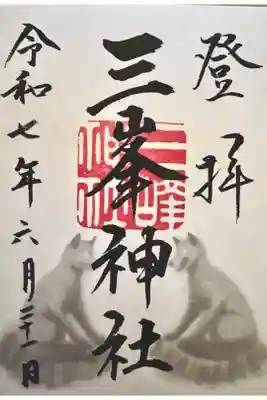 登拝
三峯神社
令和七年六月二十一日